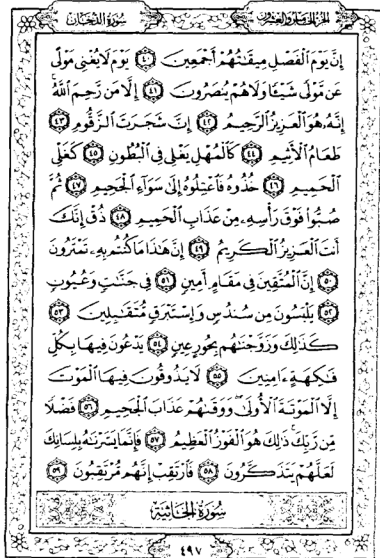 الجزء الخامس والعشرون
سورة الدخان
إِنَّ يَوْمَ الْفَصْلِ مِيقَاتُهُمْ أَجْمَعِينَ ٤٠ يَوْمَ لَا يُغْنِي مَوْلًى
عَن مَّوْلًى شَيْئًا وَلَا هُمْ يُنصَرُونَ ٤١ إِلَّا مَن رَّحِمَ اللَّهُ
إِنَّهُ هُوَ الْعَزِيزُ الرَّحِيمُ ٤٢ إِنَّ شَجَرَتَ الزَّقُّومِ ٤٣
طَعَامُ الْأَثِيمِ ٤٤ كَالْمُهْلِ يَغْلِي فِي الْبُطُونِ ٤٥ كَغَلْيِ
الْحَمِيمِ ٤٦ خُذُوهُ فَاعْتِلُوهُ إِلَىٰ سَوَاءِ الْجَحِيمِ ٤٧ ثُمَّ
صُبُّوا فَوْقَ رَأْسِهِ مِنْ عَذَابِ الْحَمِيمِ ٤٨ ذُقْ إِنَّكَ
أَنتَ الْعَزِيزُ الْكَرِيمُ ٤٩ إِنَّ هَٰذَا مَا كُنتُم بِهِ تَمْتَرُونَ
٥٠ إِنَّ الْمُتَّقِينَ فِي مَقَامٍ أَمِينٍ ٥١ فِي جَنَّاتٍ وَعُيُونٍ
٥٢ يَلْبَسُونَ مِن سُندُسٍ وَإِسْتَبْرَقٍ مُّتَقَابِلِينَ ٥٣
كَذَٰلِكَ وَزَوَّجْنَاهُم بِحُورٍ عِينٍ ٥٤ يَدْعُونَ فِيهَا بِكُلِّ
فَاكِهَةٍ آمِنِينَ ٥٥ لَا يَذُوقُونَ فِيهَا الْمَوْتَ
إِلَّا الْمَوْتَةَ الْأُولَىٰ وَوَقَاهُمْ عَذَابَ الْجَحِيمِ ٥٦ فَضْلًا
مِّن رَّبِّكَ ذَٰلِكَ هُوَ الْفَوْزُ الْعَظِيمُ ٥٧ فَإِنَّمَا يَسَّرْنَاهُ بِلِسَانِكَ
لَعَلَّهُمْ يَتَذَكَّرُونَ ٥٨ فَارْتَقِبْ إِنَّهُم مُّرْتَقِبُونَ ٥٩
سورة الجاثية
٤٩٧